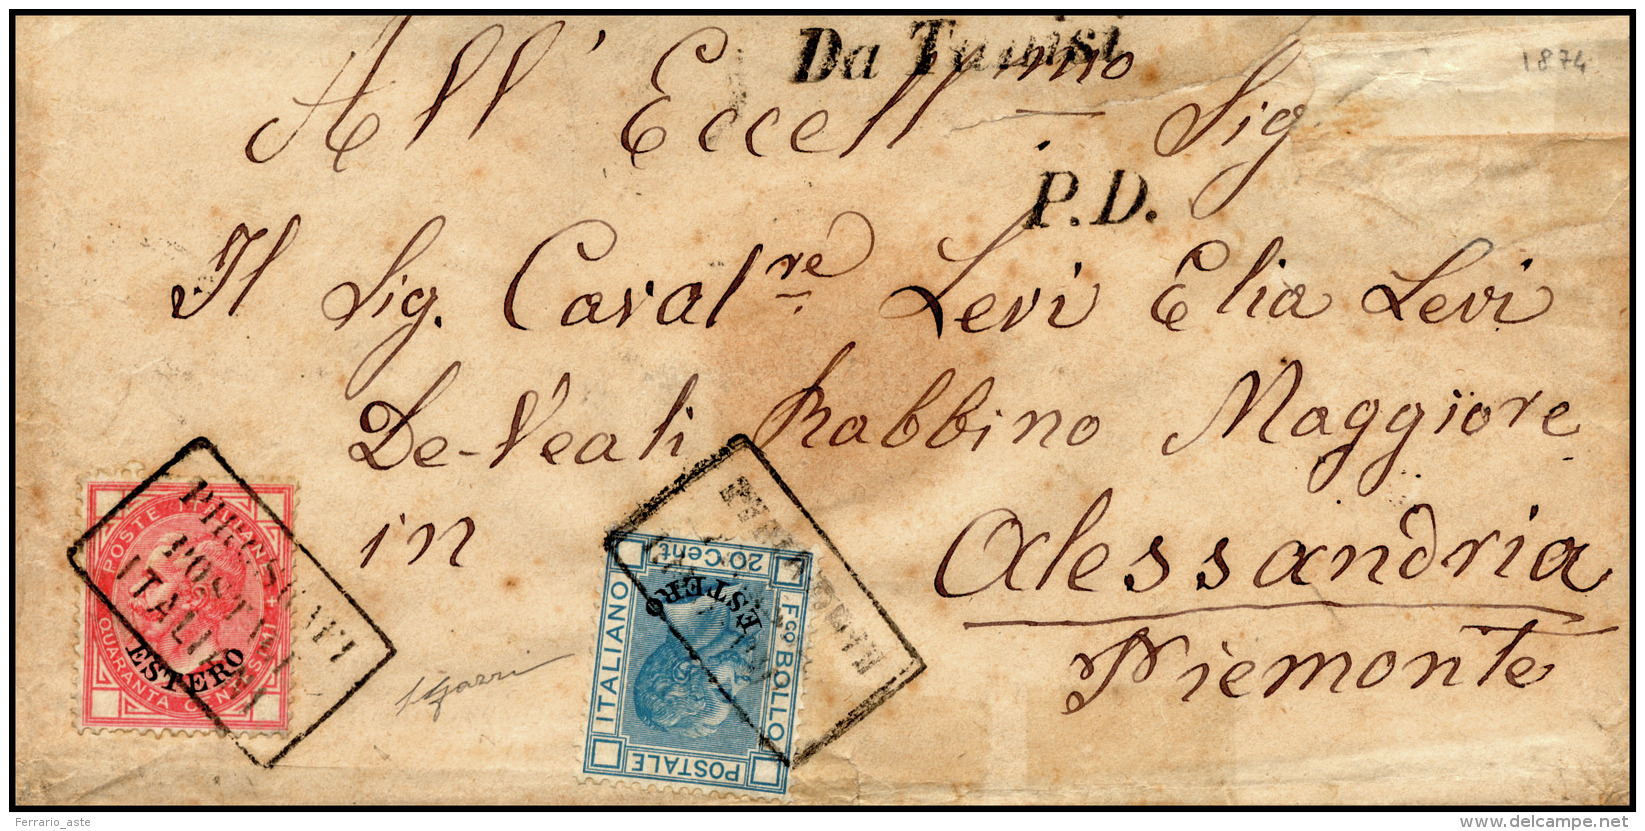 Da Tunisi
1874
All' Eccell.mo Sig
P.D.
Il Sig. Caval.re Levi Elia Levi
De-Veali Rabbino Maggiore
in Alessandria
Piemonte
PIROSCAFI
POSTALI
ITALIANI
POSTE ITALIANE
QUARANTA CENTESIMI
ESTERO
PIROSCAFI
20 Cent
F.CO BOLLO
POSTALE
ITALIANO
ESTERO
Ferrario_aste
delcampe.net